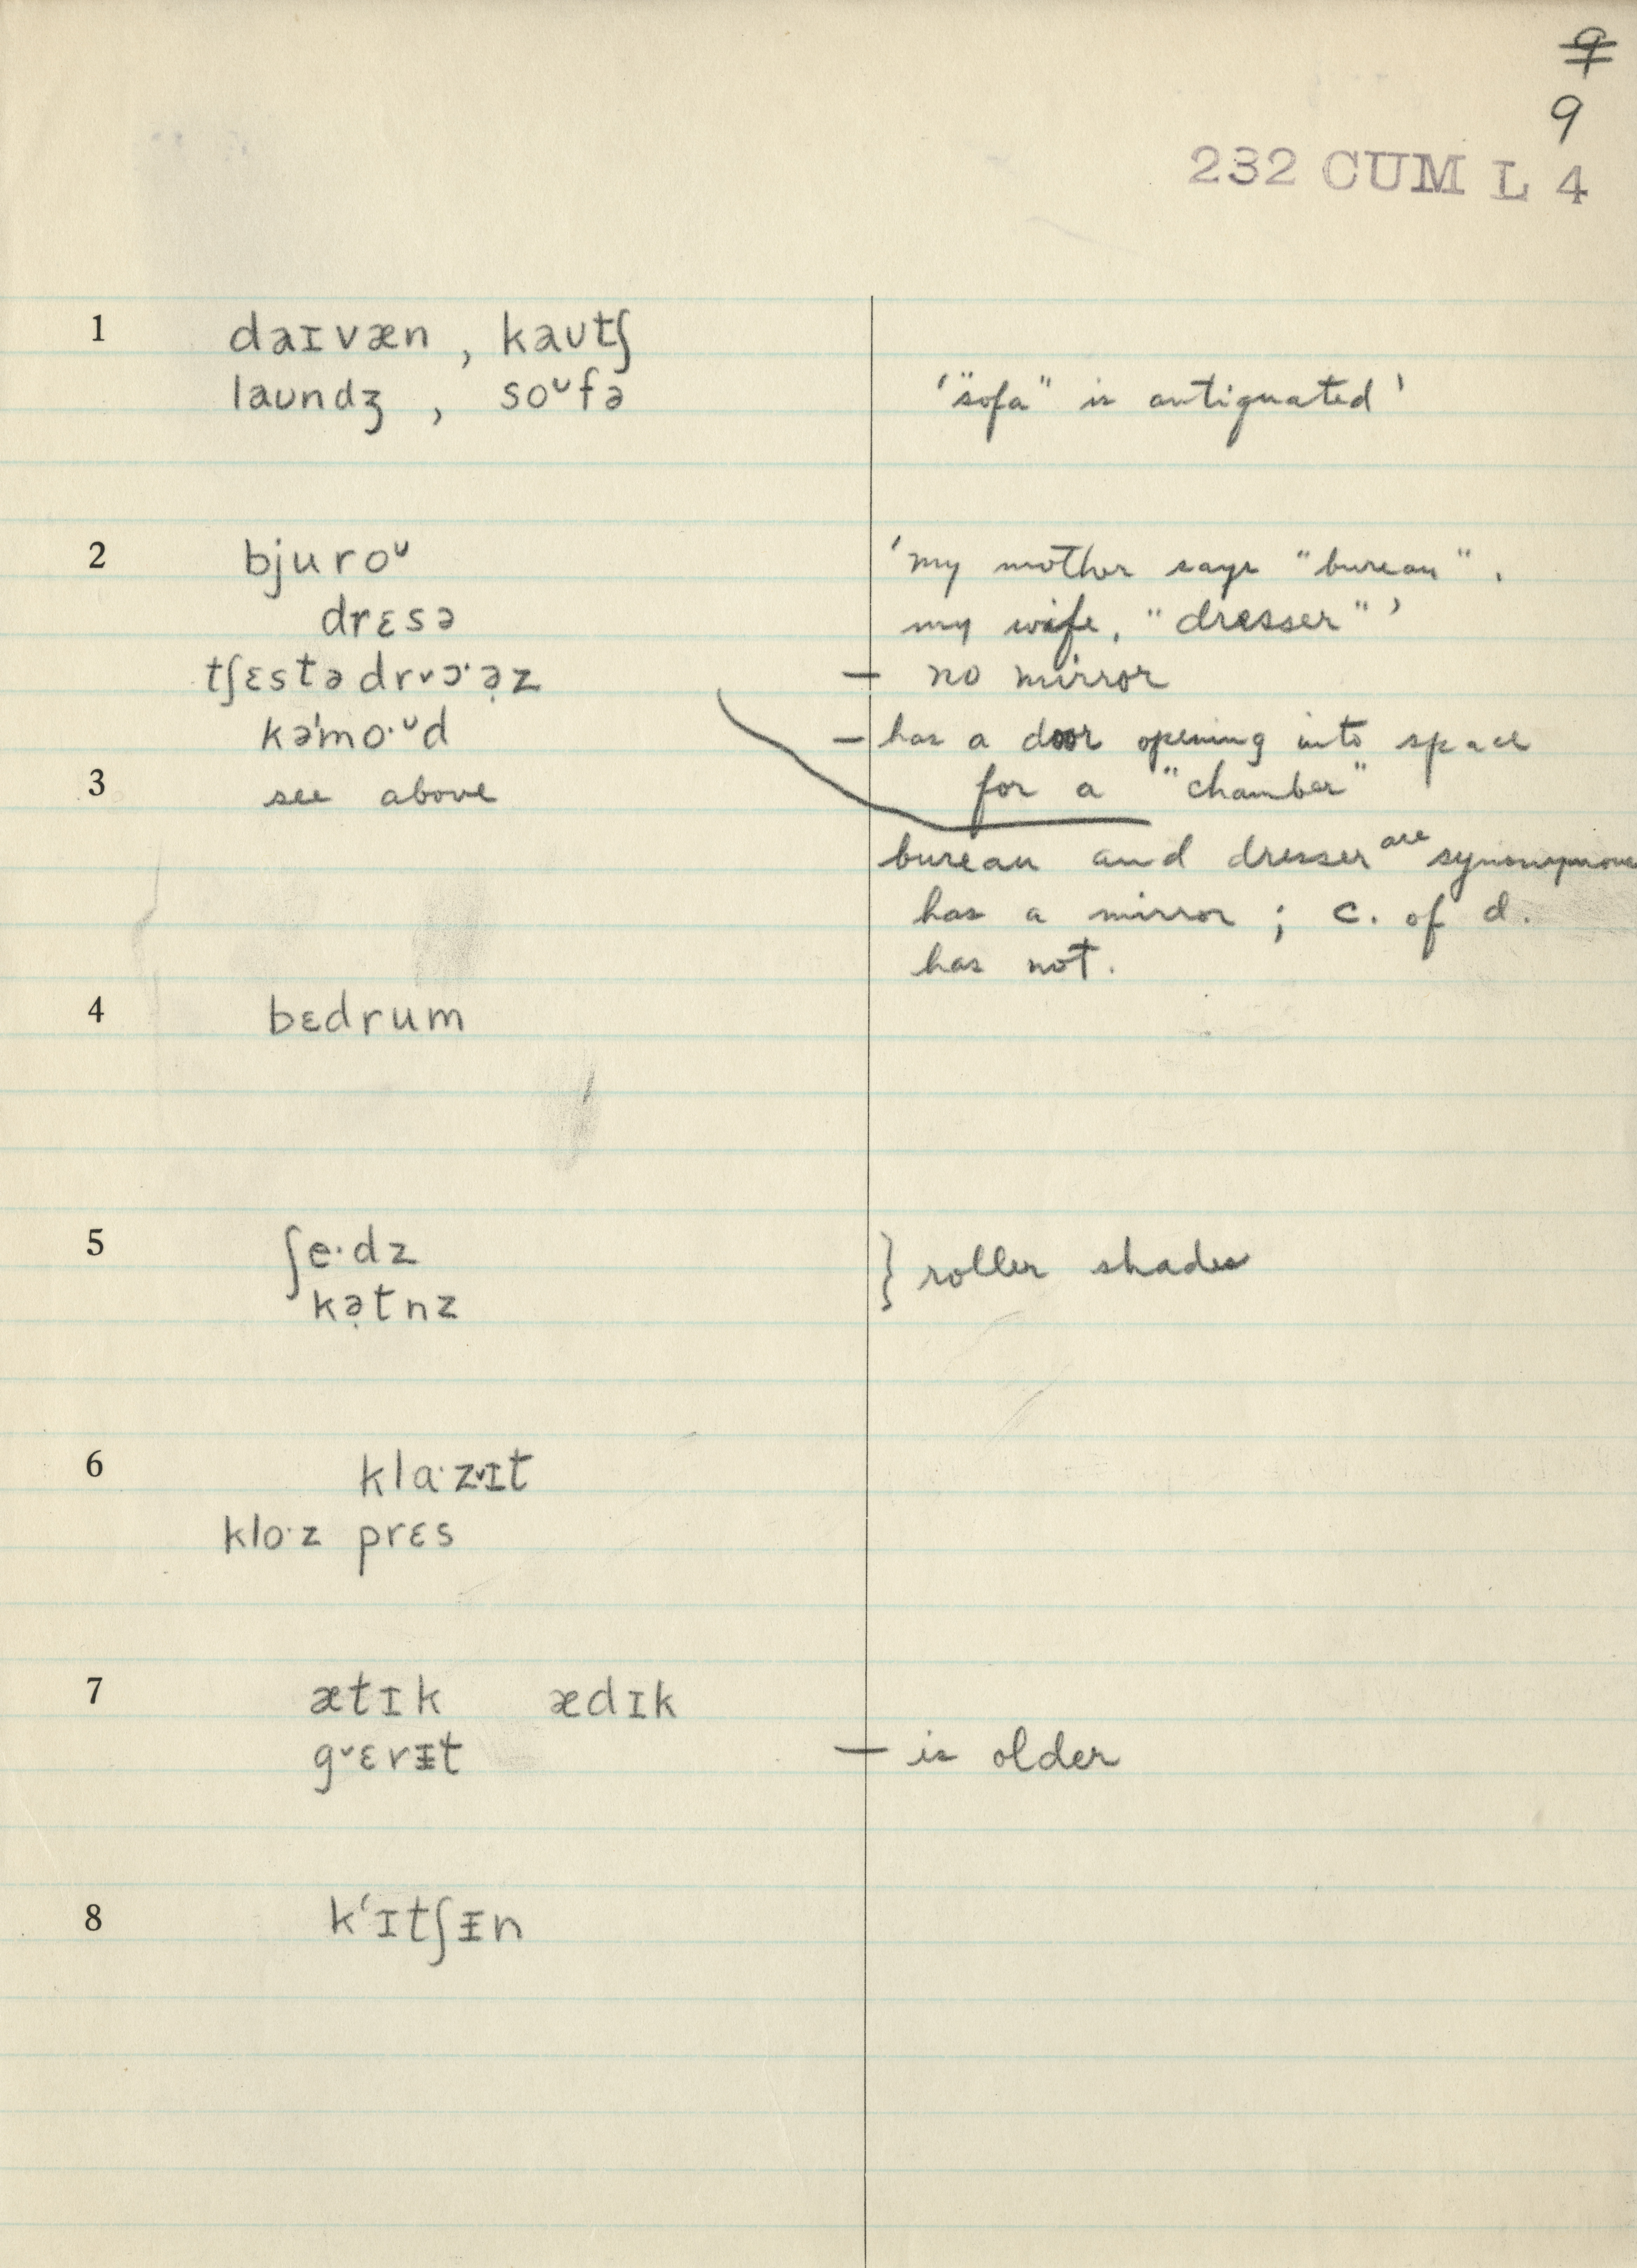 9
9
232 CUM L 4
1 daɪvæn , kaʊtʃ
laʊndʒ , soᶷfə '"sofa" is antiquated'
2 bjuroᶷ 'my mother says "bureau".
drɛsə my wife, "dresser"'
tʃɛstədr˅ɔ·ə̣z — no mirror
kə'mo·ᶷd — has a door opening into space
3 see above for a "chamber"
bureau and dresser are synonymous
has a mirror ; c. of d.
has not.
4 bɛdrum
5 ʃe·dz } roller shades
kə̣tnz
6 kla·z˅ɪt
klo·z prɛs
7 ætɪk ædɪk
g˅ɛrᵻt — is older
8 k'ɪtʃᵻn